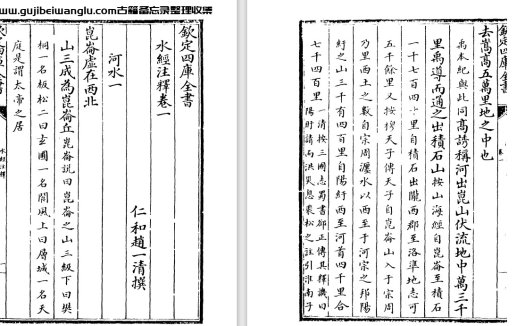 www.gujibeiwanglu.com古籍备忘录整理收集
欽定四庫全書
水經注釋卷一
仁和趙一清撰
河水一
崑崙虛在西北
山三成為崑崙丘崑崙説曰崑崙之山三級下曰樊
桐一名板松二曰玄圃一名閬風上曰層城一名天
庭是謂太帝之居
去嵩高五萬里地之中也
禹本紀與此同高誘稱河出崑山伏流地中萬三千
里禹導而通之出積石山按山海經自崑崙至積石
一千七百四十里自積石出隴西郡至洛準地志可
五千餘里又按穆天子傳天子自崑崙山入于宗周
乃里西土之數自宗周瀍水以西至于河宗之邦陽
紆之山三千有四百里自陽紆西至河首四千里合
七千四百里
一清按三國志蜀書郤正傳具釋譏曰
陽旴請而洪災息裴松之註引淮南子